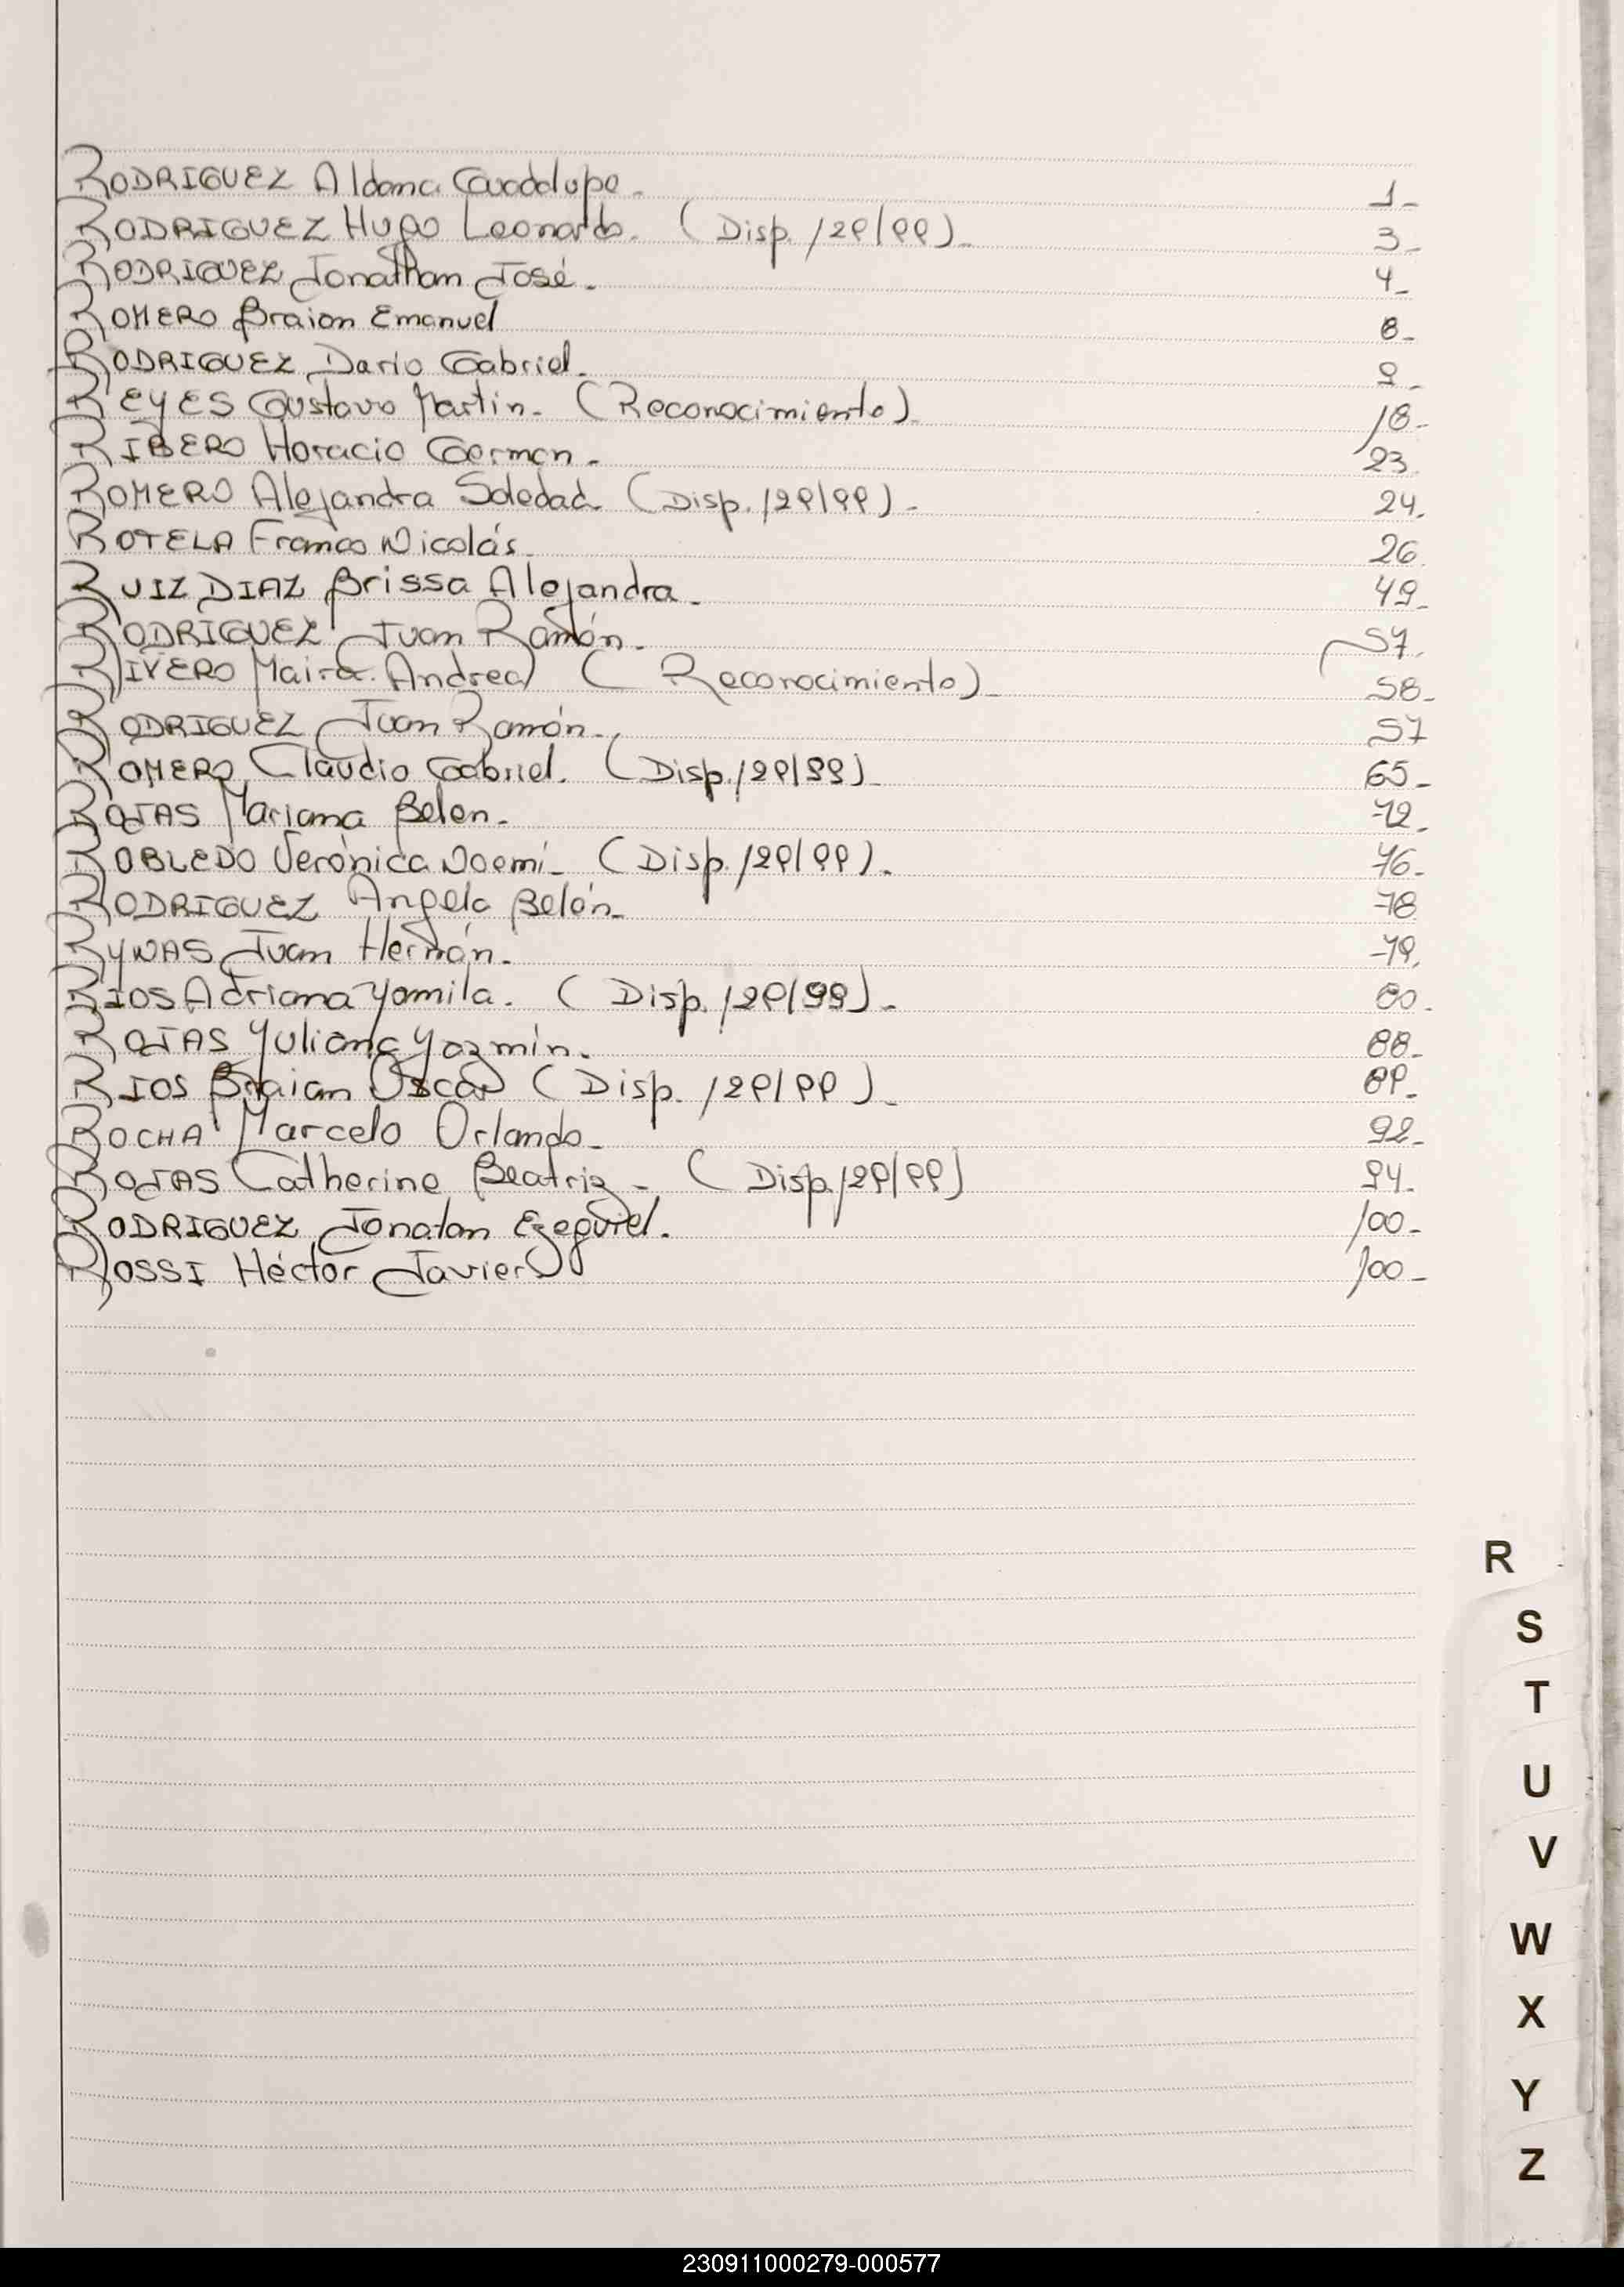 RODRIGUEZ Aldana Guadalupe. 1-
RODRIGUEZ Hugo Leonardo. (Disp. 129/99)- 3-
RODRIGUEZ Jonathan José. 4-
ROMERO Braian Emanuel 8-
RODRIGUEZ Dario Gabriel. 9-
REYES Gustavo Martin- (Reconocimiento) 18-
RIBERO Horacio German- 23
ROMERO Alejandra Soledad (Disp. 129/99)- 24.
ROTELA Franco Nicolás. 26
RUIZ DIAZ Brissa Alejandra- 49-
RODRIGUEZ Juan Ramón- 57.
RIVERO Maira Andrea (Reconocimiento)- 58-
RODRIGUEZ Juan Ramón- 57
ROMERO Claudio Gabriel. (Disp. 129/99)- 65-
ROJAS Mariana Belen- 72.
ROBLEDO Verónica Noemí- (Disp. 129/99). 76-
RODRIGUEZ Angela Belén- 78
RYNAS Juan Hernán. 79.
RIOS Adriana Yamila. (Disp. 129/99)- 80.
ROJAS Yuliana Yazmín. 88-
RIOS Braian Oscar (Disp. 129/99)- 89-
ROCHA Marcelo Orlando- 92-
ROJAS Catherine Beatriz- (Disp. 129/99) 94-
RODRIGUEZ Jonatan Ezequiel. 100-
ROSSI Héctor Javier 100-
R
S
T
U
V
W
X
Y
Z
230911000279-000577